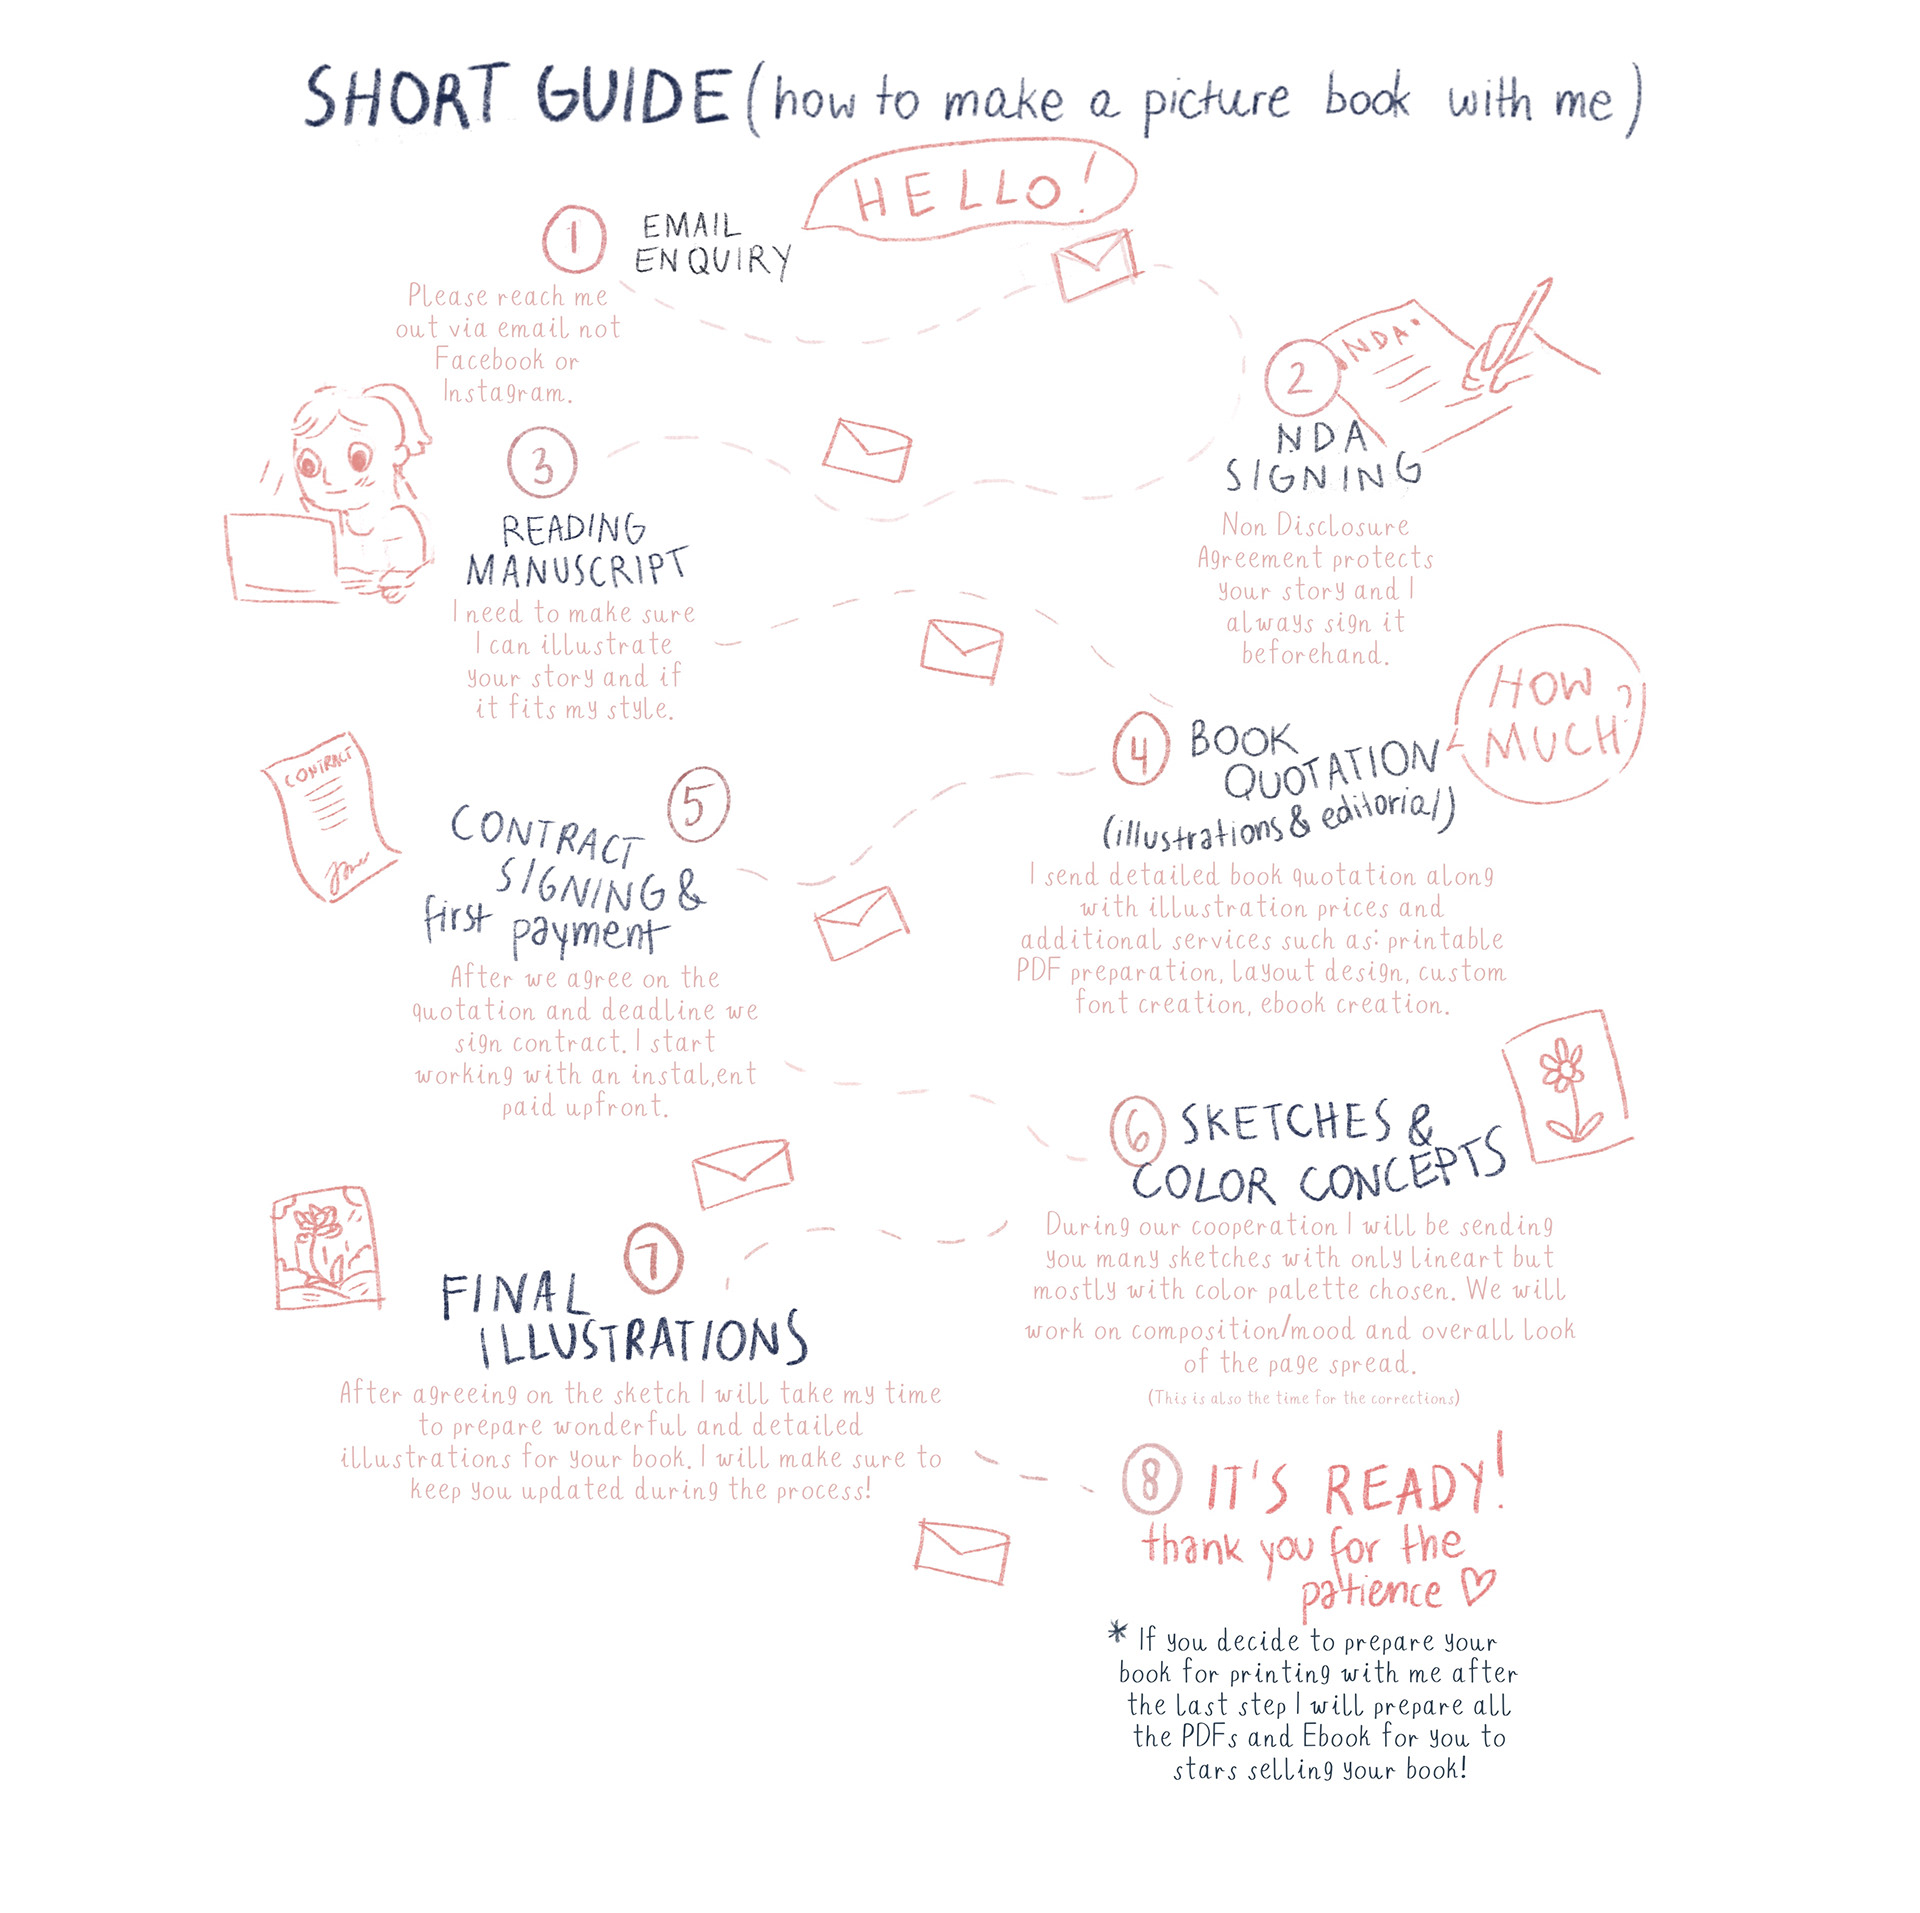 SHORT GUIDE (how to make a picture book with me)
HELLO!
1
EMAIL
ENQUIRY
Please reach me
out via email not
Facebook or
Instagram.
NDA
2
NDA
SIGNING
Non Disclosure
Agreement protects
your story and I
always sign it
beforehand.
3
READING
MANUSCRIPT
I need to make sure
I can illustrate
your story and if
it fits my style.
HOW
MUCH?
4
BOOK
QUOTATION
(illustrations & editorial)
I send detailed book quotation along
with illustration prices and
additional services such as: printable
PDF preparation, layout design, custom
font creation, ebook creation.
CONTRACT
5
CONTRACT
SIGNING &
first payment
After we agree on the
quotation and deadline we
sign contract. I start
working with an instal,ent
paid upfront.
6
SKETCHES &
COLOR CONCEPTS
During our cooperation I will be sending
you many sketches with only lineart but
mostly with color palette chosen. We will
work on composition/mood and overall look
of the page spread.
(This is also the time for the corrections)
7
FINAL
ILLUSTRATIONS
After agreeing on the sketch I will take my time
to prepare wonderful and detailed
illustrations for your book. I will make sure to
keep you updated during the process!
8
IT'S READY!
thank you for the
patience ♡
* If you decide to prepare your
book for printing with me after
the last step I will prepare all
the PDFs and Ebook for you to
stars selling your book!